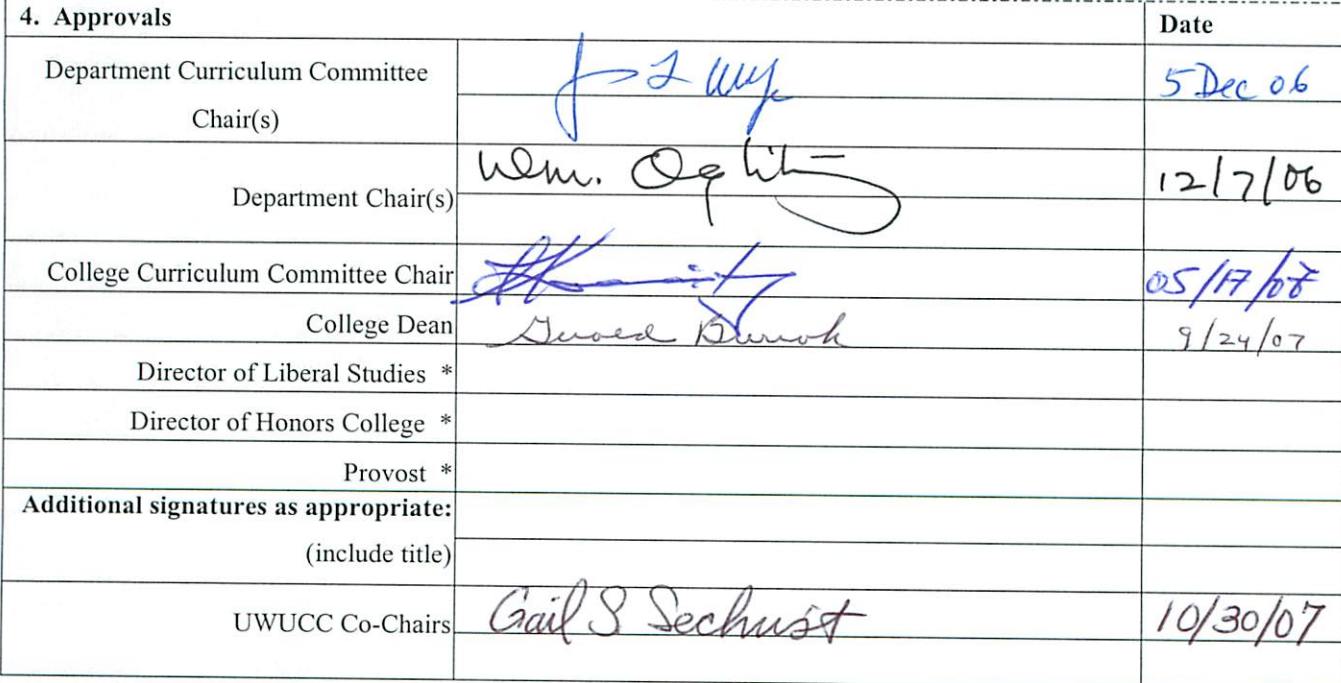 4. Approvals Date
Department Curriculum Committee Chair(s) 5 Dec 06
Department Chair(s) Wm. 12/7/06
College Curriculum Committee Chair 05/17/
College Dean 9/24/07
Director of Liberal Studies *
Director of Honors College *
Provost *
Additional signatures as appropriate:
(include title)
UWUCC Co-Chairs Gail S Sechrist 10/30/07